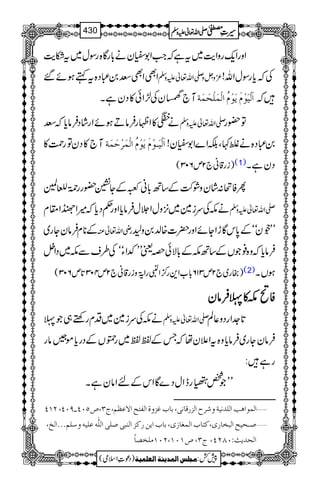 سیرتِ مصطفیٰ صلی اللہ تعالیٰ علیہ وسلم 430
اور ایک روایت میں یہ ہے کہ جب ابوسفیان نے بارگاہِ رسول میں یہ شکایت
کی کہ یارسول اللہ! (عزوجل و صلی اللہ تعالیٰ علیہ وسلم) ابھی ابھی سعد بن عبادہ یہ کہتے ہوئے گئے
ہیں کہ اَلْیَوْمَ یَوْمُ الْمَلْحَمَۃ آج گھمسان کی لڑائی کا دن ہے۔
تو حضور صلی اللہ تعالیٰ علیہ وسلم نے خفگی کا اظہار فرماتے ہوئے ارشاد فرمایا کہ سعد
بن عبادہ نے غلط کہا، بلکہ اے ابوسفیان! اَلْیَوْمَ یَوْمُ الْمَرْحَمَۃ آج کا دن تو رحمت کا
دن ہے۔ (1) (زرقانی ج۲ ص۳۰۶)
پھر فاتحانہ شان و شوکت کے ساتھ بانی کعبہ کے جانشین حضور رحمۃ للعالمین
صلی اللہ تعالیٰ علیہ وسلم نے مکہ کی سرزمین میں نزولِ اجلال فرمایا اور حکم دیا کہ میرا جھنڈا مقام
’’حجون‘‘ کے پاس گاڑا جائے اور حضرت خالد بن ولید رضی اللہ تعالیٰ عنہ کے نام فرمان جاری
فرمایا کہ وہ فوجوں کے ساتھ مکہ کے بالائی حصہ یعنی ’’کداء‘‘ کی طرف سے مکہ میں داخل
ہوں۔ (2) (بخاری ج۲ ص۶۱۳ باب این رکز النبی رایۃ و زرقانی ج۲ ص۳۰۴ تا ص۳۰۶)
فاتح مکہ کا پہلا فرمان
تاجدارِ دوعالم صلی اللہ تعالیٰ علیہ وسلم نے مکہ کی سرزمین میں قدم رکھتے ہی جو پہلا
فرمان جاری فرمایا وہ یہ اعلان تھا کہ جس کے لفظ لفظ میں رحمتوں کے دریا موجیں مار
رہے ہیں:
’’جو شخص ہتھیار ڈال دے گا اس کے لئے امان ہے۔
......المواھب اللدنیۃ وشرح الزرقانی، باب غزوۃ الفتح الاعظم، ج۳، ص۴۰۵، ۴۰۹، ۴۱۲
......صحیح البخاری، کتاب المغازی، باب این رکز النبی صلی اللہ علیہ وسلم...الخ،
الحدیث: ۴۲۸۰، ج۳، ص۱۰۱، ۱۰۲ ملخصاً
پیش کش: مجلس المدینۃ العلمیۃ (دعوتِ اسلامی)